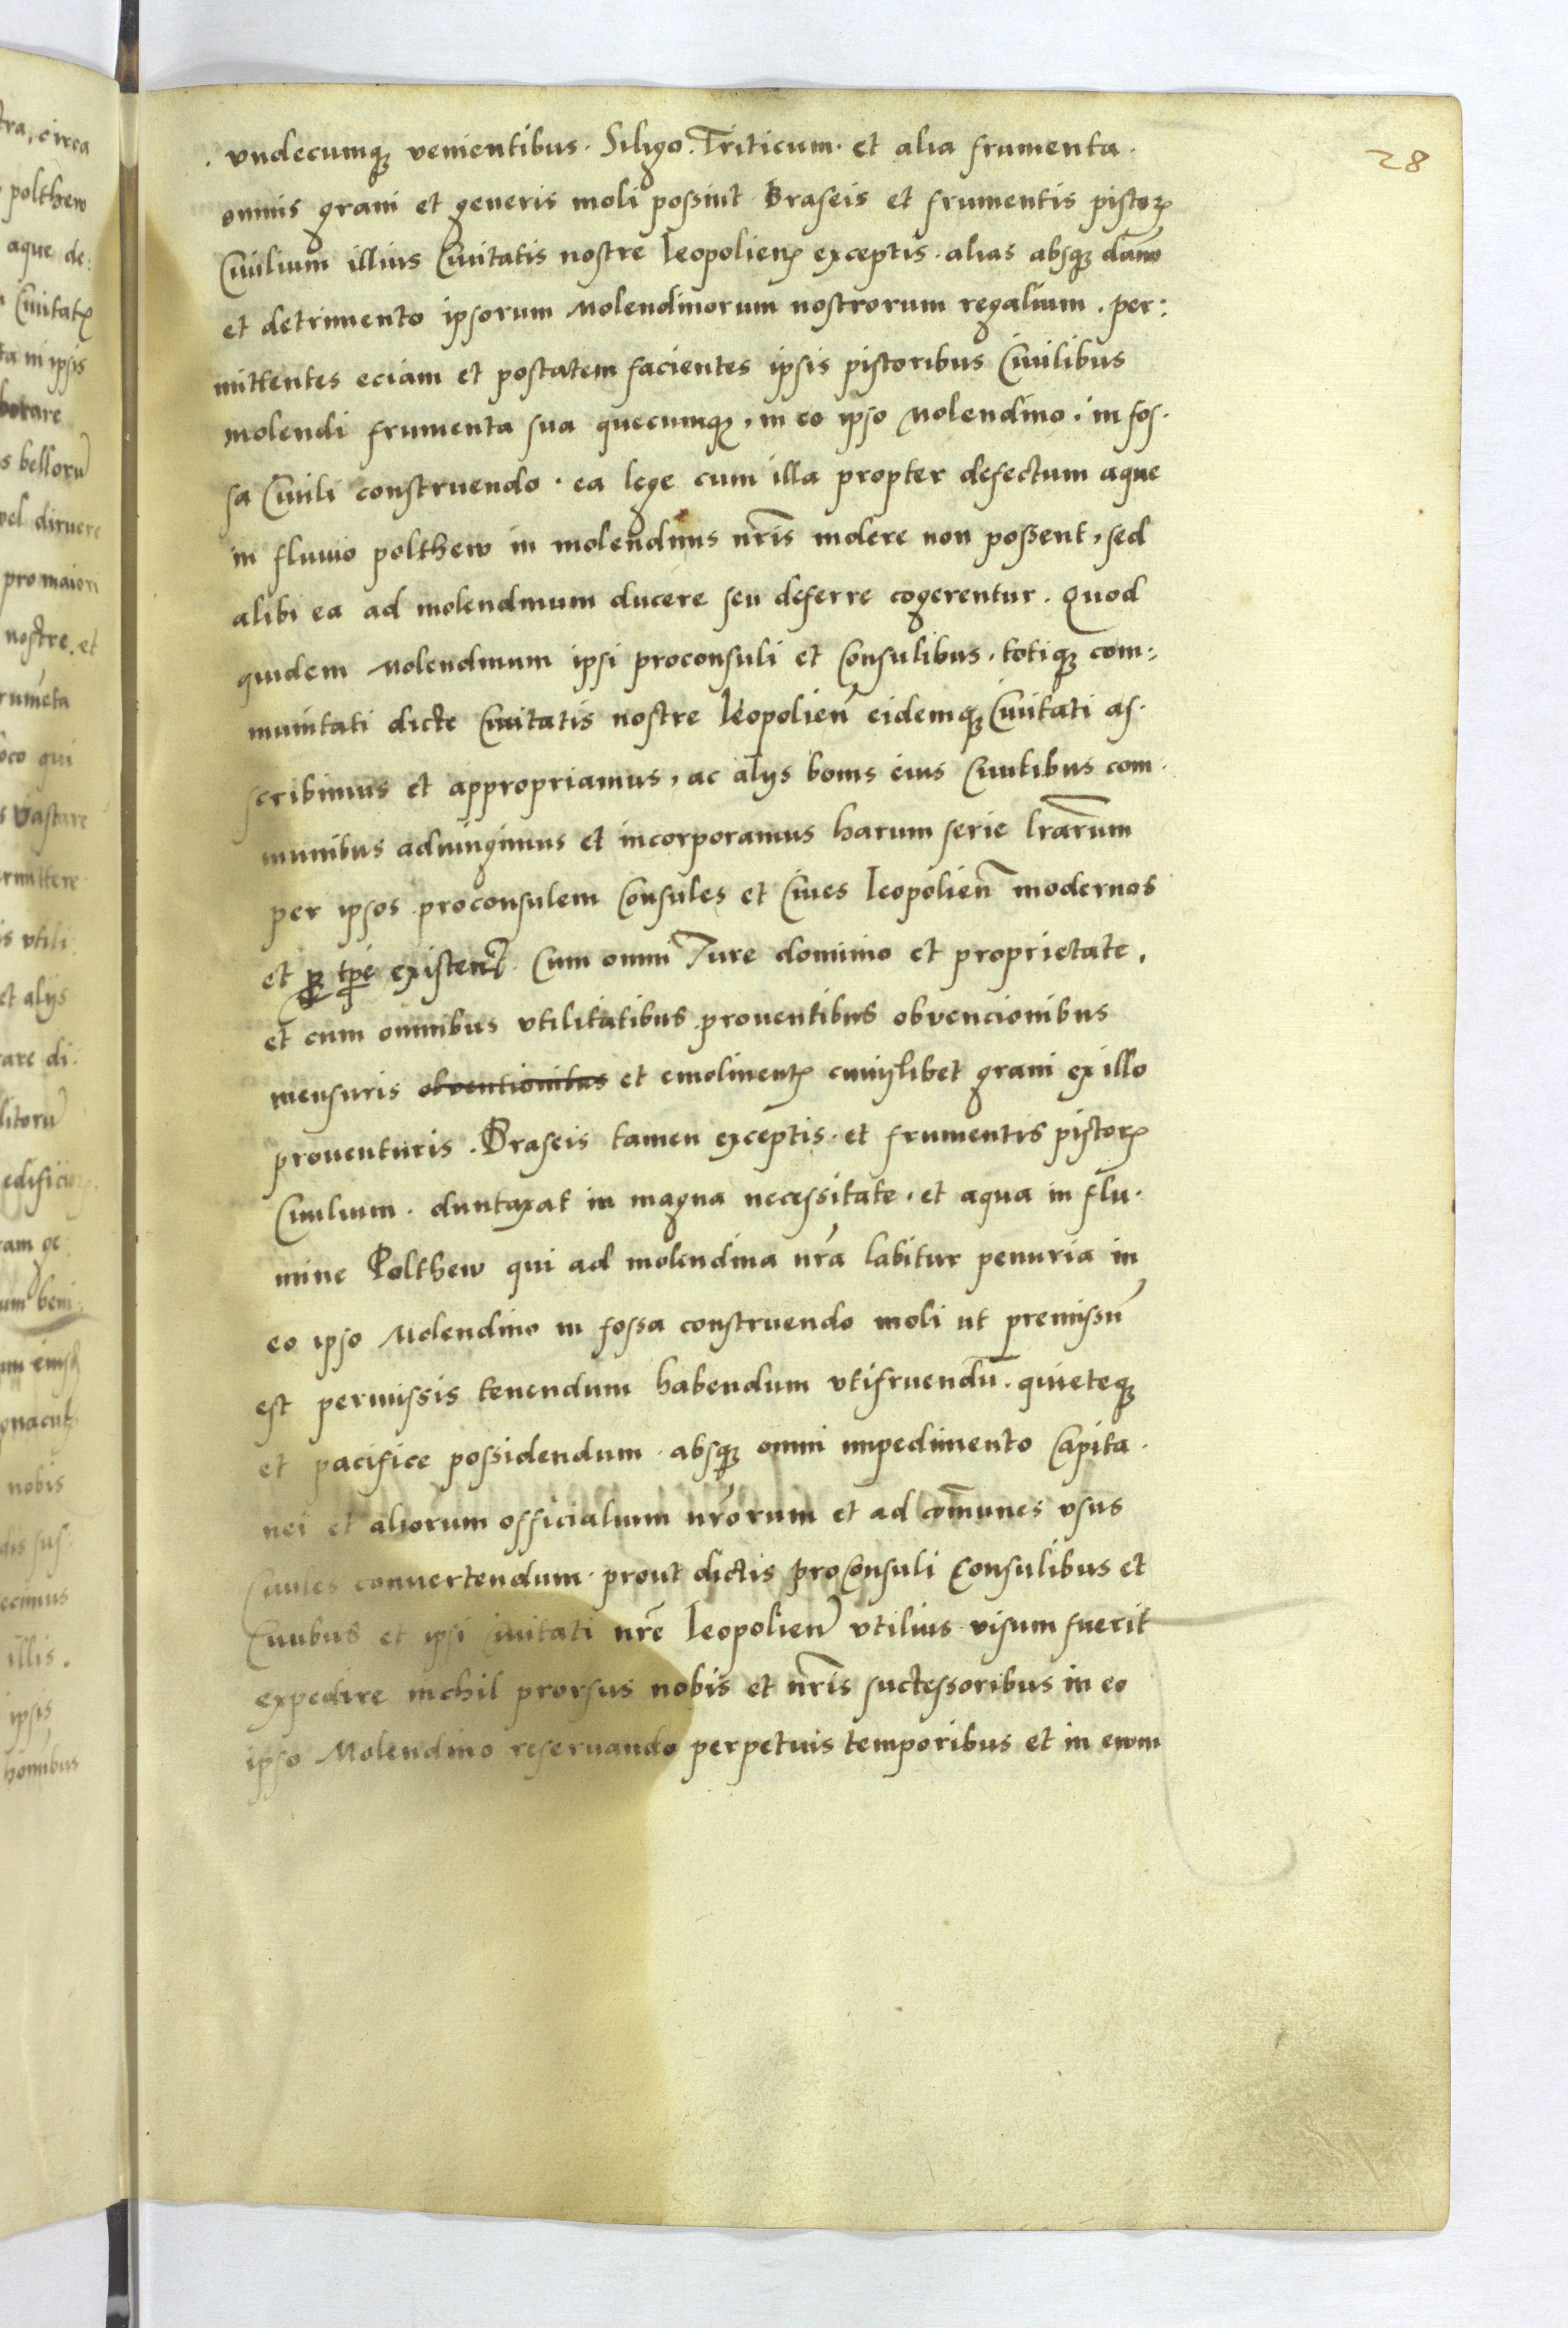 28
undecumqꝫ venientibus. Siligo. Triticum. et alia frumenta.
omnis grani et generis moli possint Braseis et frumentis pistorꝝ
Civilium illius Civitatis nostre Leopolienꝭ exceptis. alias absqꝫ dam̄o
et detrimento ipsorum Molendinorum nostrorum regalium. per:
mittentes eciam et postatem facientes ipsis pistoribus Civilibus
molendi frumenta sua quecumqꝫ, in eo ipso Molendino. in fos.
sa Civili construendo. ea lege cum illa propter defectum aque
in fluvio polthew in molendinis nr̄is molere non possent, sed
alibi ea ad molendinum ducere seu deferre cogerentur. Quod
quidem Molendinum ipsi proconsuli et Consulibus. totiqꝫ com:
munitati dicte Civitatis nostre Leopolien̄ eidemqꝫ Civitati as.
scribimus et appropriamus, ac alijs bonis eius Civitibus com.
munibus adiungimus et incorporamus harum serie lr̄arum
per ipsos proconsulem Consules et Cives Leopolien̄ modernos
et ꝓ tp̄e existen̄t. Cum omni Iure dominio et proprietate.
et cum omnibus utilitatibus proventibus obvencionibus
mensuris obventionibus et emolimentꝭ cuiuslibet grani ex illo
proventuris. Braseis tamen exceptis. et frumentis pistorꝝ
Civilium. duntaxat in magna necessitate. et aqua in flu.
mine Polthew qui ad molendina nr̄a labitur penuria in
eo ipso Molendino in fossa construendo moli ut premissū
est permissis tenendum habendum utifruendū. quieteqꝫ
et pacifice possidendum. absqꝫ omni impedimento Capita.
nei et aliorum officialium nr̄orum et ad com̄unes usus
Civiles convertendum. prout dictis proConsuli Consulibus et
Civibus et ipsi Civitati nr̄e Leopolien̄ utilius visum fuerit
expedire nichil prorsus nobis et nr̄is suctessoribus in eo
ipso Molendino reservando perpetuis temporibus et in ewm